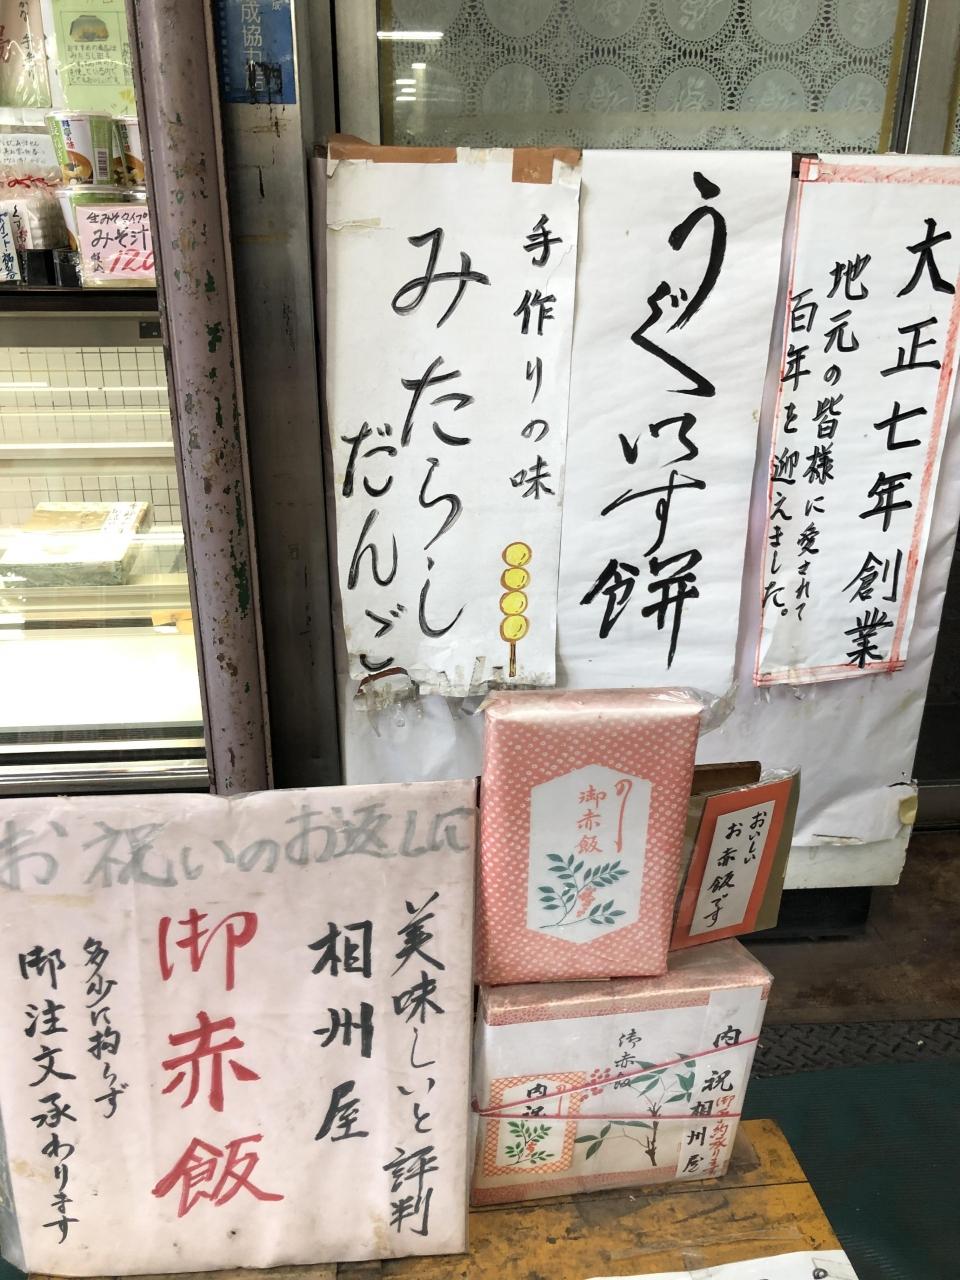 大正七年創業
地元の皆様に愛されて
百年を迎えました。
うぐいす餅
手作りの味
みたらし
だんご
お祝いのお返しに
美味しいと評判
相州屋
御赤飯
多少に拘らず
御注文承わります
の
御赤飯
おいしい
お赤飯です
内祝
相州屋
御赤飯
内祝
生みそタイプ
みそ汁
成協力店